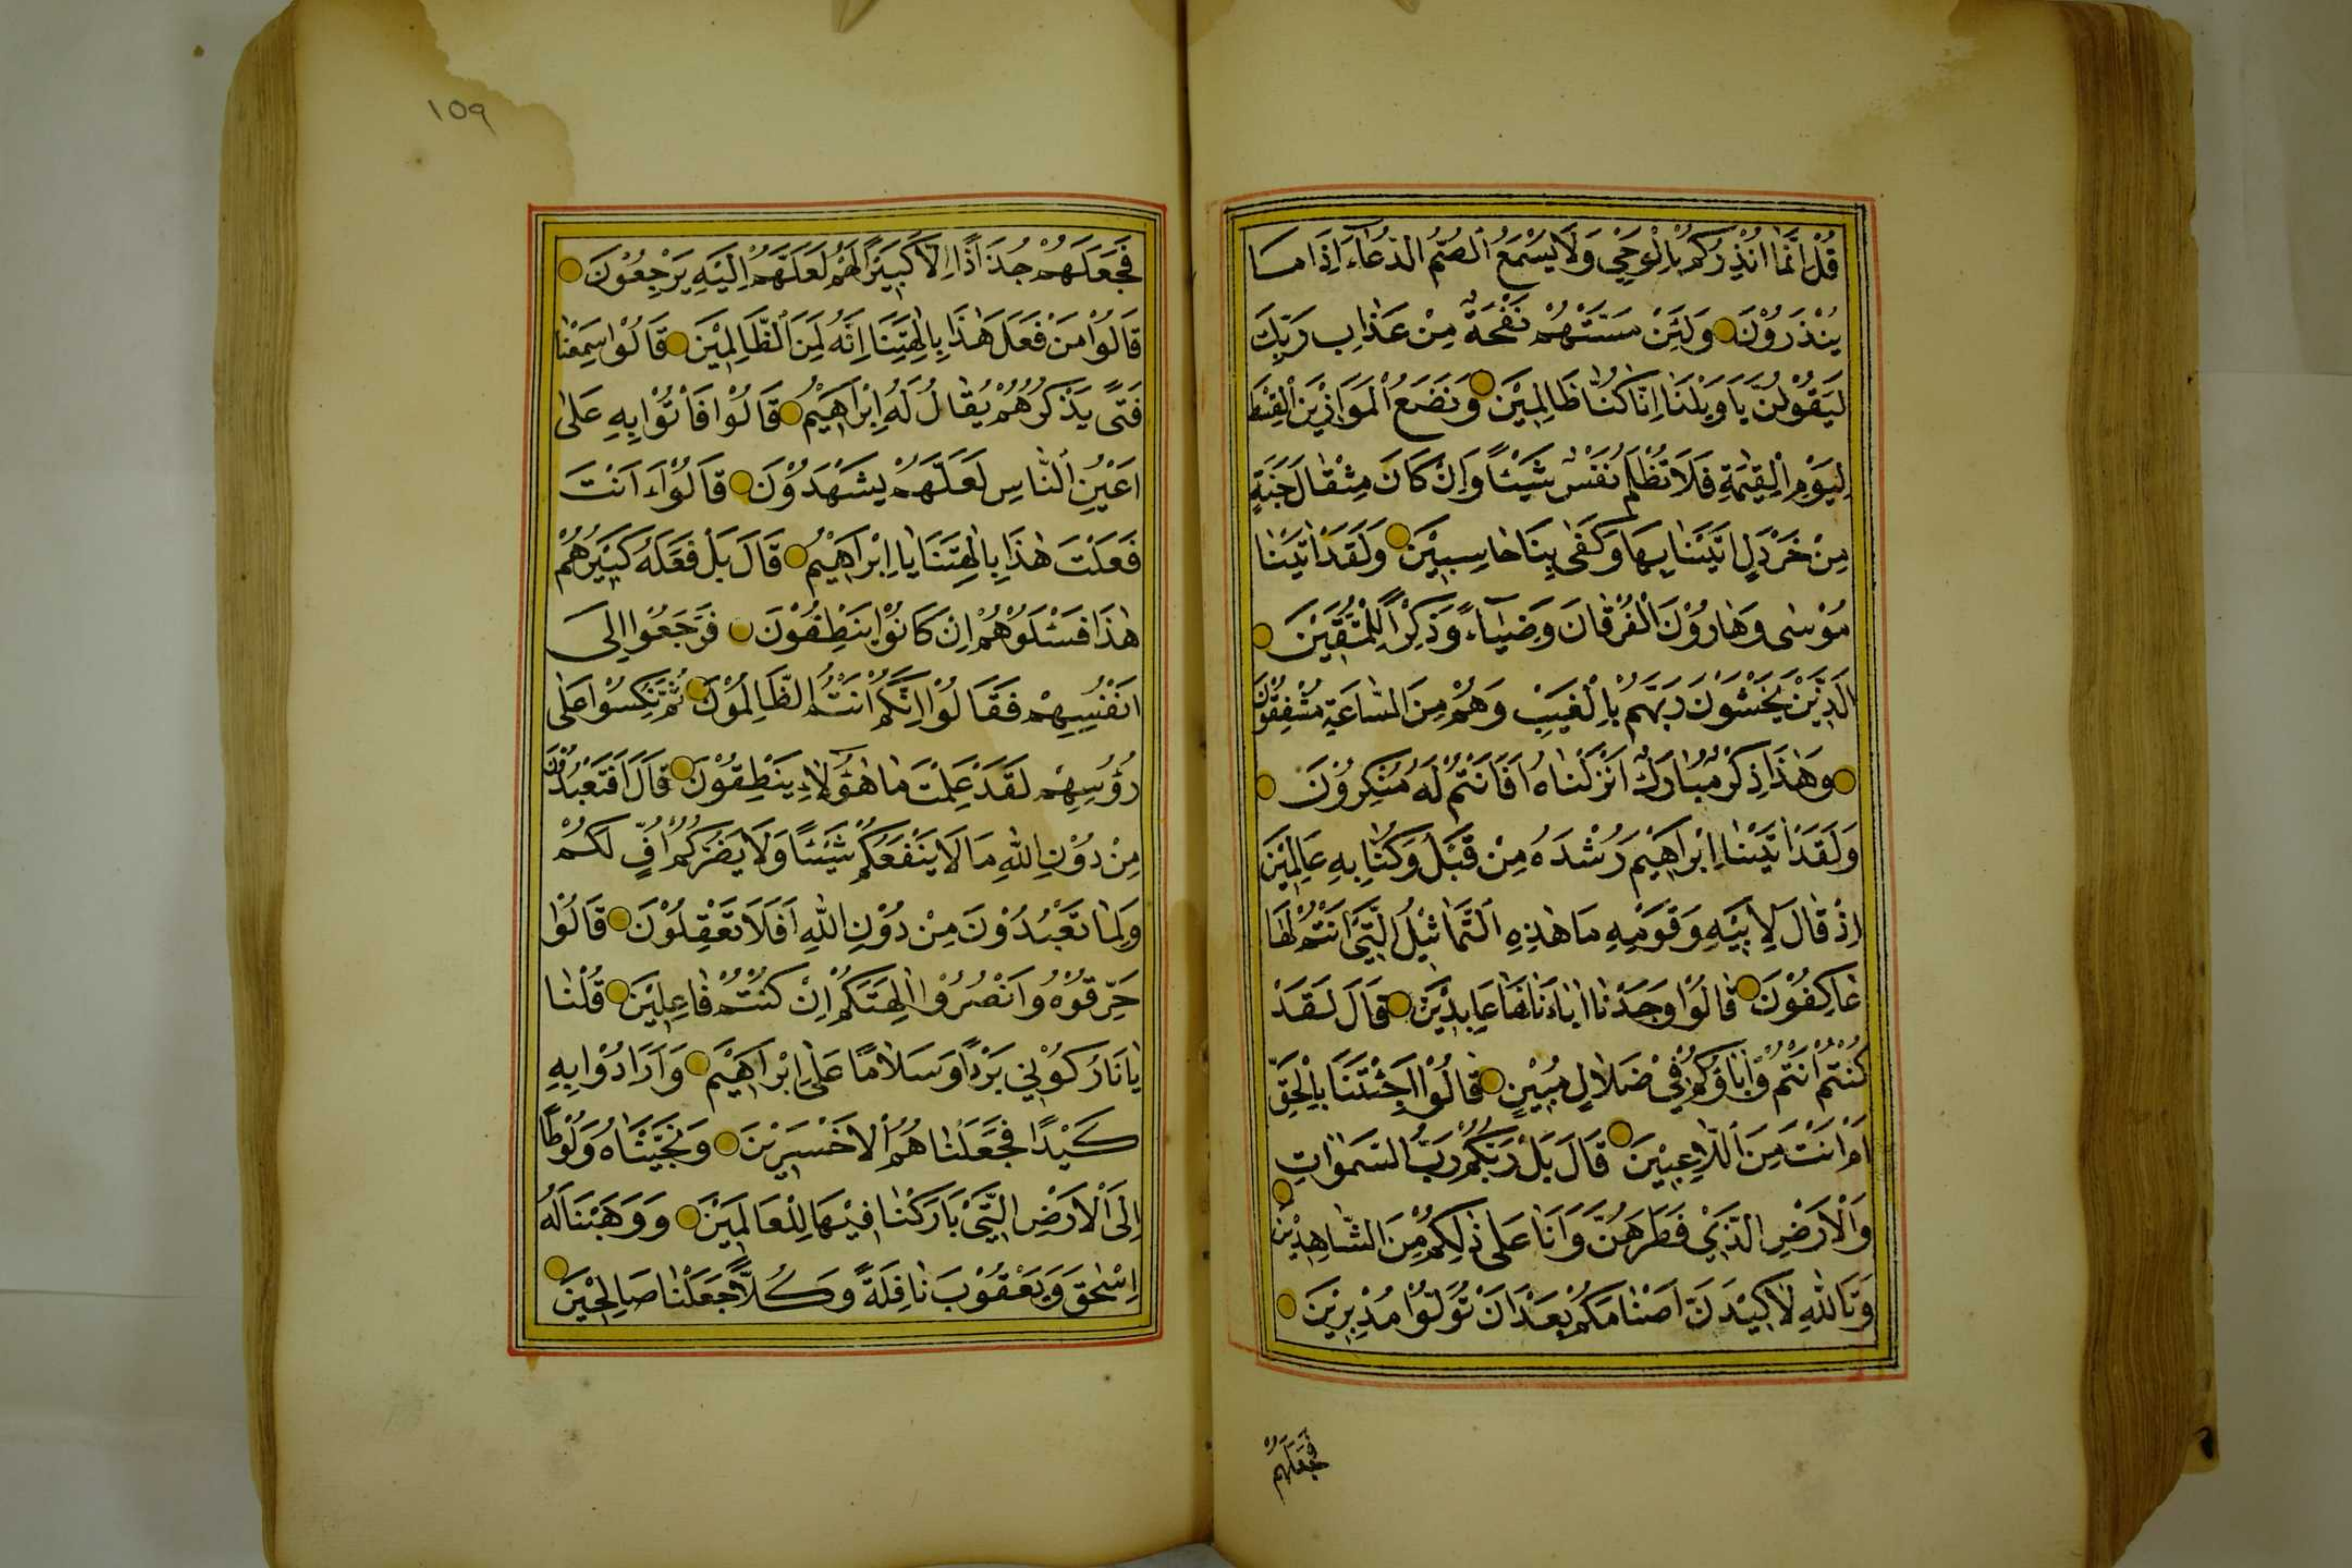 قُلْ اِنَّمَا اُنْذِرُكُمْ بِالْوَحْيِ وَلَا يَسْمَعُ الصُّمُّ الدُّعَاءَ اِذَا مَا
يُنْذَرُوْنَ وَلَئِنْ مَسَّتْهُمْ نَفْحَةٌ مِنْ عَذَابِ رَبِّكَ
لَيَقُوْلُنَّ يَا وَيْلَنَا اِنَّا كُنَّا ظَالِمِيْنَ وَنَضَعُ الْمَوَازِيْنَ الْقِسْطَ
لِيَوْمِ الْقِيٰمَةِ فَلَا تُظْلَمُ نَفْسٌ شَيْئًا وَاِنْ كَانَ مِثْقَالَ حَبَّةٍ
مِنْ خَرْدَلٍ اَتَيْنَا بِهَا وَكَفٰى بِنَا حَاسِبِيْنَ وَلَقَدْ اٰتَيْنَا
مُوْسٰى وَهَارُوْنَ الْفُرْقَانَ وَضِيَاءً وَذِكْرًا لِلْمُتَّقِيْنَ
الَّذِيْنَ يَخْشَوْنَ رَبَّهُمْ بِالْغَيْبِ وَهُمْ مِنَ السَّاعَةِ مُشْفِقُوْنَ
وَهٰذَا ذِكْرٌ مُبَارَكٌ اَنْزَلْنَاهُ اَفَاَنْتُمْ لَهُ مُنْكِرُوْنَ
وَلَقَدْ اٰتَيْنَا اِبْرَاهِيْمَ رُشْدَهُ مِنْ قَبْلُ وَكُنَّا بِهِ عَالِمِيْنَ
اِذْ قَالَ لِاَبِيْهِ وَقَوْمِهِ مَا هٰذِهِ التَّمَاثِيْلُ الَّتِيْ اَنْتُمْ لَهَا
عَاكِفُوْنَ قَالُوْا وَجَدْنَا اٰبَاءَنَا لَهَا عَابِدِيْنَ قَالَ لَقَدْ
كُنْتُمْ اَنْتُمْ وَاٰبَاؤُكُمْ فِيْ ضَلَالٍ مُبِيْنٍ قَالُوْا اَجِئْتَنَا بِالْحَقِّ
اَمْ اَنْتَ مِنَ اللَّاعِبِيْنَ قَالَ بَلْ رَبُّكُمْ رَبُّ السَّمٰوَاتِ
وَالْاَرْضِ الَّذِيْ فَطَرَهُنَّ وَاَنَا عَلٰى ذٰلِكُمْ مِنَ الشَّاهِدِيْنَ
وَتَاللّٰهِ لَاَكِيْدَنَّ اَصْنَامَكُمْ بَعْدَ اَنْ تُوَلُّوْا مُدْبِرِيْنَ
فَجَعَلَهُمْ
١٥٩
فَجَعَلَهُمْ جُذَاذًا اِلَّا كَبِيْرًا لَهُمْ لَعَلَّهُمْ اِلَيْهِ يَرْجِعُوْنَ
قَالُوْا مَنْ فَعَلَ هٰذَا بِاٰلِهَتِنَا اِنَّهُ لَمِنَ الظَّالِمِيْنَ قَالُوْا سَمِعْنَا
فَتًى يَذْكُرُهُمْ يُقَالُ لَهُ اِبْرَاهِيْمُ قَالُوْا فَاْتُوْا بِهِ عَلٰى
اَعْيُنِ النَّاسِ لَعَلَّهُمْ يَشْهَدُوْنَ قَالُوْا ءَاَنْتَ
فَعَلْتَ هٰذَا بِاٰلِهَتِنَا يَا اِبْرَاهِيْمُ قَالَ بَلْ فَعَلَهُ كَبِيْرُهُمْ
هٰذَا فَسْئَلُوْهُمْ اِنْ كَانُوْا يَنْطِقُوْنَ فَرَجَعُوْا اِلٰى
اَنْفُسِهِمْ فَقَالُوْا اِنَّكُمْ اَنْتُمُ الظَّالِمُوْنَ ثُمَّ نُكِسُوْا عَلٰى
رُؤُسِهِمْ لَقَدْ عَلِمْتَ مَا هٰؤُلَاءِ يَنْطِقُوْنَ قَالَ اَفَتَعْبُدُوْنَ
مِنْ دُوْنِ اللّٰهِ مَا لَا يَنْفَعُكُمْ شَيْئًا وَلَا يَضُرُّكُمْ اُفٍّ لَكُمْ
وَلِمَا تَعْبُدُوْنَ مِنْ دُوْنِ اللّٰهِ اَفَلَا تَعْقِلُوْنَ قَالُوْا
حَرِّقُوْهُ وَانْصُرُوْا اٰلِهَتَكُمْ اِنْ كُنْتُمْ فَاعِلِيْنَ قُلْنَا
يَا نَارُ كُوْنِيْ بَرْدًا وَسَلَامًا عَلٰى اِبْرَاهِيْمَ وَاَرَادُوْا بِهِ
كَيْدًا فَجَعَلْنَاهُمُ الْاَخْسَرِيْنَ وَنَجَّيْنَاهُ وَلُوْطًا
اِلَى الْاَرْضِ الَّتِيْ بَارَكْنَا فِيْهَا لِلْعَالَمِيْنَ وَوَهَبْنَا لَهُ
اِسْحٰقَ وَيَعْقُوْبَ نَافِلَةً وَكُلًّا جَعَلْنَا صَالِحِيْنَ